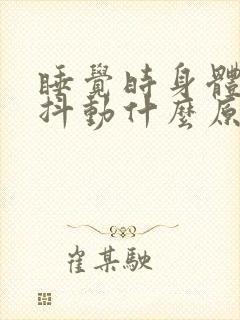 睡覺時身體
抖動什麼原
崔某駛